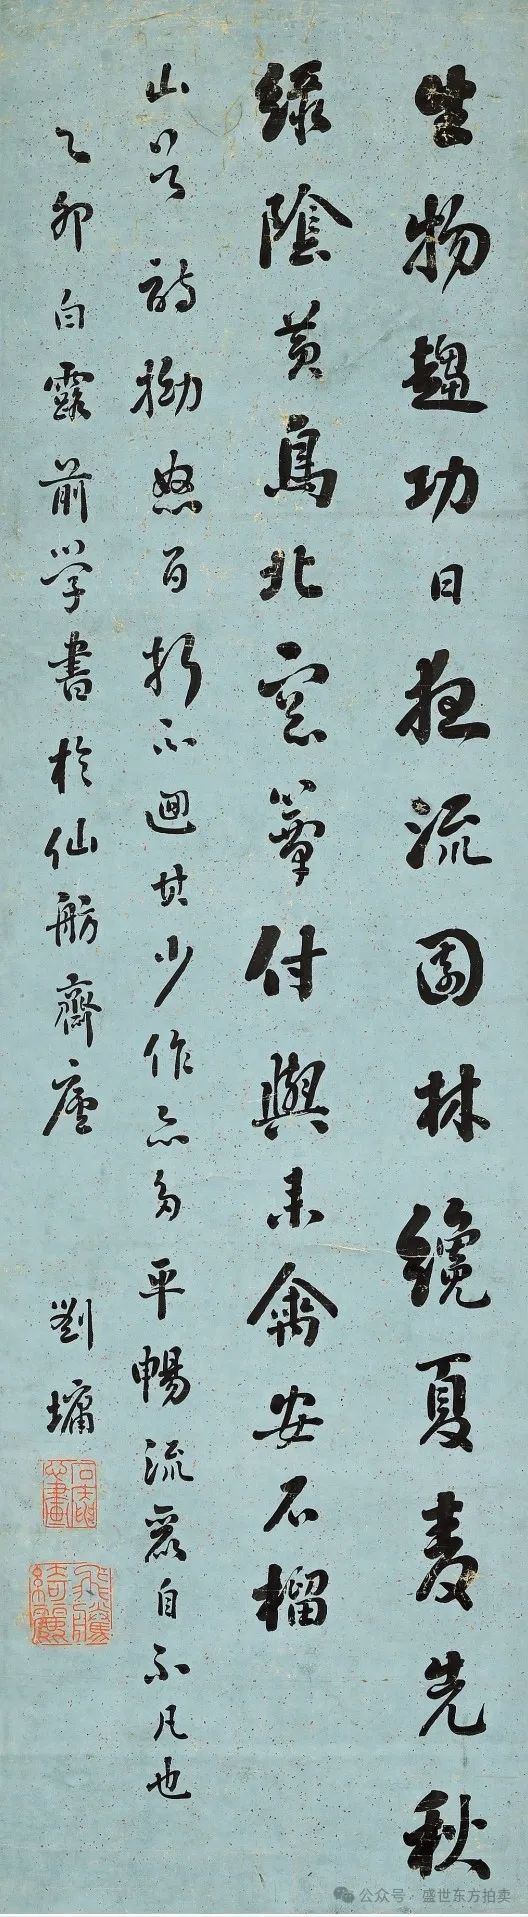 生物趨功日夜流園林纔夏麦先秋
綠陰黃鳥北窓簟付與来禽安石榴
山谷詩拗怒百折不迴其少作亦多平暢流麗自不凡也
乙卯白露前學書於仙舫齋廬
劉墉
飛騰綺麗
公众号 · 盛世东方拍卖